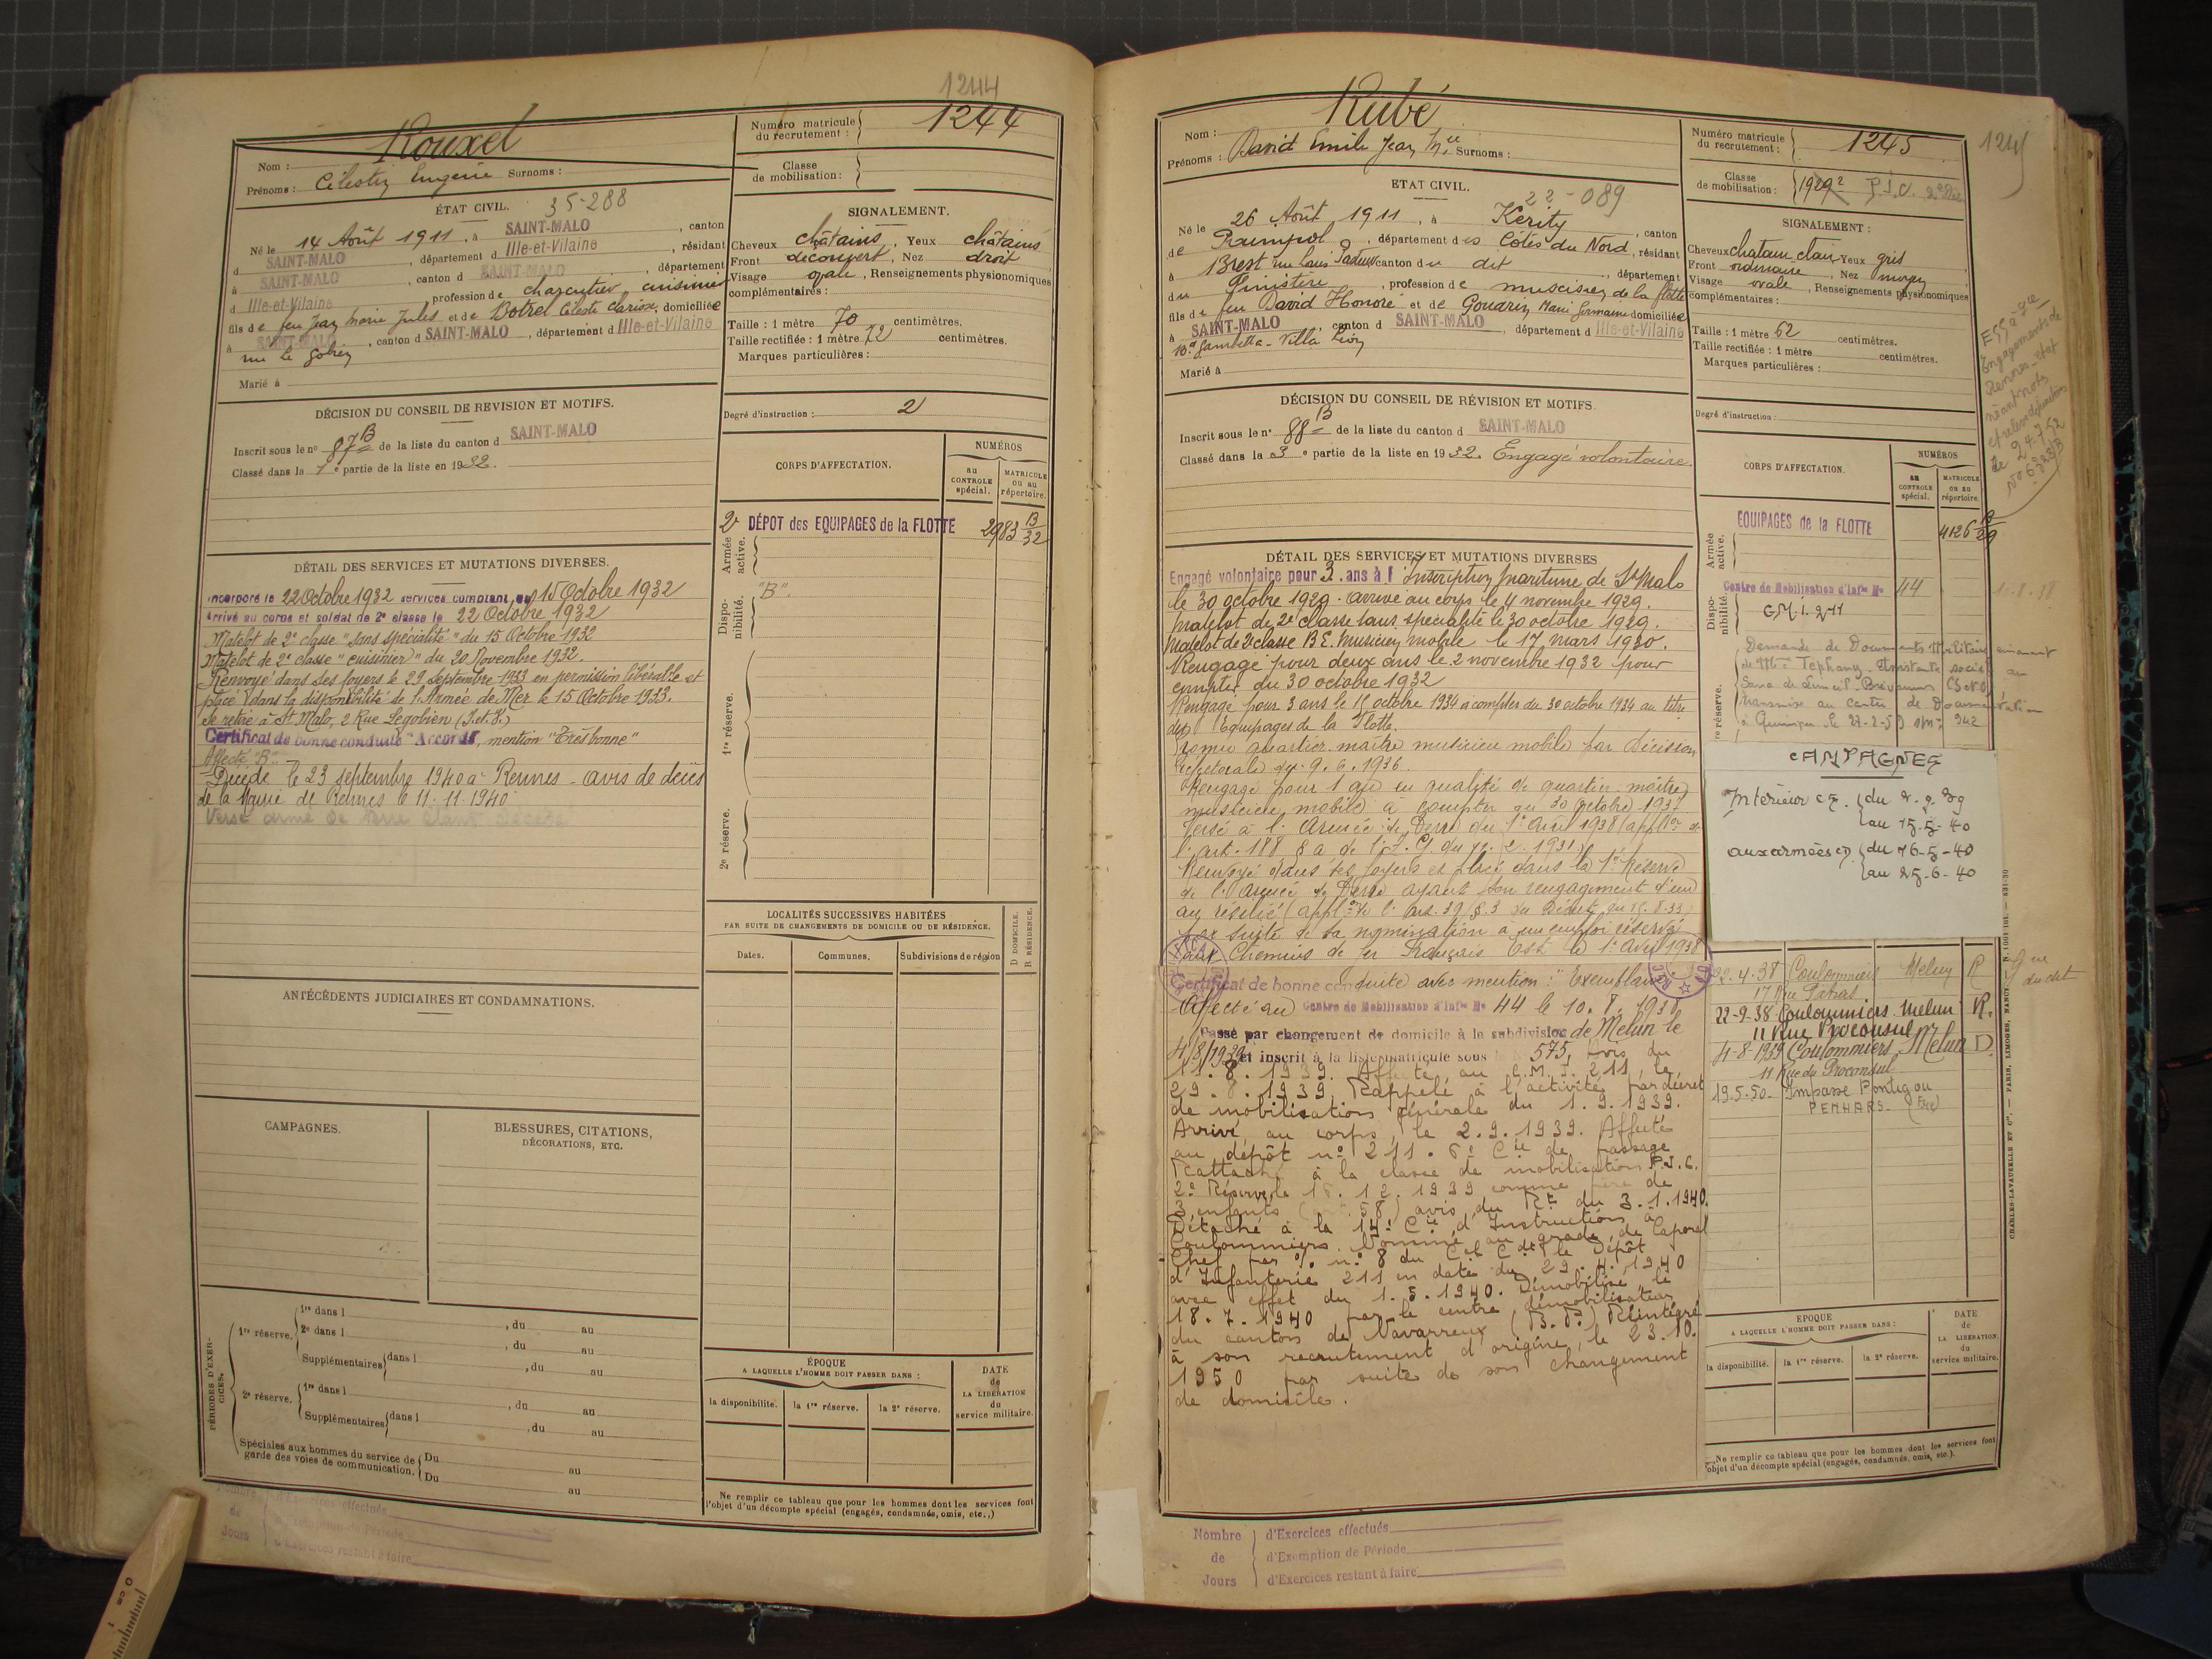 1244
Rouxel
Nom :
Prénoms : Célestin Eugène Surnoms :
Numéro matricule du recrutement : 1244
Classe de mobilisation :
ÉTAT CIVIL. 35-288
Né le 14 Août 1911, à SAINT-MALO, canton
d SAINT-MALO, département d Ille-et-Vilaine, résidant
à SAINT-MALO, canton d SAINT-MALO, département
d Ille-et-Vilaine, profession de charcutier, cuisinier
fils de feu Jean Marie Jules et de Botrel Céleste Clarisse, domiciliée
à SAINT-MALO, canton d SAINT-MALO, département d Ille-et-Vilaine
rue Le Gobien
Marié à
SIGNALEMENT.
Cheveux châtains, Yeux châtains
Front découvert, Nez droit
Visage ovale, Renseignements physionomiques
complémentaires :
Taille : 1 mètre 70 centimètres.
Taille rectifiée : 1 mètre 72 centimètres.
Marques particulières :
DÉCISION DU CONSEIL DE REVISION ET MOTIFS.
Inscrit sous le nº 87 B de la liste du canton d SAINT-MALO
Classé dans la 1e partie de la liste en 1932.
Degré d'instruction : 2
CORPS D'AFFECTATION.
NUMÉROS
au CONTROLE spécial.
MATRICULE ou au répertoire.
Armée active.
2e DÉPOT des EQUIPAGES de la FLOTTE 2983 B/32
Disponibilité.
"B".
1re réserve.
2e réserve.
DÉTAIL DES SERVICES ET MUTATIONS DIVERSES.
Incorporé le 22 Octobre 1932 services comptant du 15 Octobre 1932
Arrivé au corps et soldat de 2e classe le 22 Octobre 1932
Matelot de 2e classe "sans spécialité" du 15 Octobre 1932
Matelot de 2e classe "cuisinier" du 20 Novembre 1932.
Renvoyé dans ses foyers le 29 Septembre 1933 en permission libérable et
placé dans la disponibilité de l'Armée de Mer le 15 Octobre 1933.
Se retire à St Malo, 2 Rue Legobien (I.et.V.)
Certificat de bonne conduite "Accordé", mention "Très bonne"
Affecté "B".
Décédé le 23 septembre 1940 à Rennes - avis de décès
de la Mairie de Rennes le 11-11-1940
Versé armée de terre étant décédé
ANTÉCÉDENTS JUDICIAIRES ET CONDAMNATIONS.
LOCALITÉS SUCCESSIVES HABITÉES
PAR SUITE DE CHANGEMENTS DE DOMICILE OU DE RÉSIDENCE.
Dates.
Communes.
Subdivisions de région
D DOMICILE.
R RÉSIDENCE.
CAMPAGNES.
BLESSURES, CITATIONS, DÉCORATIONS, ETC.
PÉRIODES D'EXERCICES.
1re réserve. 1re dans l , du au
2e dans l , du au
Supplémentaires dans l , du au
2e réserve. 1re dans l , du au
Supplémentaires dans l , du au
Spéciales aux hommes du service de garde des voies de communication. Du au
Du au
ÉPOQUE
A LAQUELLE L'HOMME DOIT PASSER DANS :
la disponibilité.
la 1re réserve.
la 2e réserve.
DATE de LA LIBÉRATION du service militaire.
Ne remplir ce tableau que pour les hommes dont les services font
l'objet d'un décompte spécial (engagés, condamnés, omis, etc.,)
Nombre de Jours
d'Exercices effectués
d'Exemption de Période
d'Exercices restant à faire
1245
Rubé
Nom :
Prénoms : David Emile Jean Mie Surnoms :
Numéro matricule du recrutement : 1245
Classe de mobilisation : 1929 P.J.C. 2e Rés
ETAT CIVIL.
22-089
Né le 26 Août 1911, à Kérity, canton
de Paimpol, département des Côtes du Nord, résidant
à Brest rue Louis Pasteur canton du dit, département
du Finistère, profession de musicien de la flotte
fils de feu David Honoré et de Gouarin Marie Germaine domiciliée
à SAINT-MALO, canton d SAINT-MALO, département d Ille-et-Vilaine
Bd Gambetta - Villa
Marié à
SIGNALEMENT :
Cheveux chatain clair Yeux gris
Front ordinaire, Nez moyen
Visage ovale, Renseignements physionomiques
complémentaires :
Taille : 1 mètre 62 centimètres.
Taille rectifiée : 1 mètre centimètres.
Marques particulières :
Engagements de
Rennes - état
le 24-7-52
DÉCISION DU CONSEIL DE RÉVISION ET MOTIFS.
Inscrit sous le nº 88 B de la liste du canton d SAINT-MALO
Classé dans la 3e partie de la liste en 1932. Engagé volontaire.
Degré d'instruction :
CORPS D'AFFECTATION.
NUMÉROS
au CONTROLE spécial.
MATRICULE ou au répertoire.
Armée active.
EQUIPAGES de la FLOTTE 4126 B/29
Disponibilité.
Centre de Mobilisation d'Infie Nº 44
C.M.I. 211
Demande de Documents Militaires émanant
de Mlle Tephany - Assistante sociale au
Sana de Limeil-Brévannes (S&O)
transmise au Centre de Documentation
à Quimper le 27-2-59 942
DÉTAIL DES SERVICES ET MUTATIONS DIVERSES
Engagé volontaire pour 3 ans à l'Inscription Maritime de St Malo
le 30 octobre 1929. Arrivé au corps le 4 novembre 1929.
Matelot de 2e classe sans spécialité le 30 octobre 1929.
Matelot de 2e classe B.E. Musicien mobile le 17 mars 1930.
Rengagé pour deux ans le 2 novembre 1932 pour
compter du 30 octobre 1932
Rengagé pour 3 ans le 15 octobre 1934 à compter du 30 octobre 1934 au titre
des Equipages de la Flotte.
Promu quartier-maître musicien mobile par décision
Préfectorale du 9.6.1936.
Rengagé pour 1 an en qualité de quartier-maître
musicien mobile à compter du 30 octobre 1937
Versé à l'Armée de Terre du 1er Avril 1938 (applon de
l'art. 188 § a de l'I.G. du 2.1931)
Renvoyé dans ses foyers et placé dans la 1ère Réserve
de l'Armée de Terre ayant son rengagement d'un
an résilié (applon de l'art. 39 § 3 du Décret du 15.8.33)
par suite de sa nomination à un emploi réservé
aux Chemins de fer Français Est le 1er Avril 1938
Certificat de bonne conduite avec mention : "Exemplaire"
Affecté au Centre de Mobilisation d'Infie Nº 44 le 10.8.1938
Passé par changement de domicile à la subdivision de Melun le
4/8/1939 et inscrit à la liste matricule sous Nº 575, bois du
11.8.1939. Affecté au C.M.I. 211 le
29.8.1939. Rappelé à l'activité par décret
de mobilisation générale du 1.9.1939.
Arrivé au corps le 2.9.1939. Affecté
au dépôt nº 211. 6e Cie de Passage
Rattaché à la classe de mobilisation P.J.C.
2e Réserve le 15.12.1939 comme père de
3 enfants (art. 58) avis du Rt du 3.1.1940.
Détaché à la 14e Cie d'Instruction à
Coulommiers. Nommé au grade de Caporal
Chef par % nº 8 du Cel Cdt le Dépôt
d'Infanterie 211 en date du 29.4.1940
avec effet du 1.5.1940. Démobilisé le
18.7.1940 par le centre démobilisateur
du canton de Navarrenx (B.P.) Réintégré
à son recrutement d'origine, le 23.10.
1950 par suite de son changement
de domicile.
CAMPAGNES
Intérieur CS. du 2-9-39
au 15-5-40
aux armées CD. du 16-5-40
au 25-6-40
22.4.38 Coulommiers Melun R
17 Rue Pêtras
22-9-38 Coulommiers Melun R.
11 Rue Proconsul
4-8-1939 Coulommiers Melun D.
11 Rue du Proconsul
19.5.50 - Impasse Pontigou
PENHARS -
EPOQUE
A LAQUELLE L'HOMME DOIT PASSER DANS :
la disponibilité.
la 1re réserve.
la 2e réserve.
DATE de LA LIBERATION du service militaire.
Ne remplir ce tableau que pour les hommes dont les services font
l'objet d'un décompte spécial (engagés, condamnés, omis, etc.).
CHARLES-LAVAUZELLE ET Cie. — PARIS, LIMOGES, NANCY
Nombre de Jours
d'Exercices effectués
d'Exemption de Période
d'Exercices restant à faire